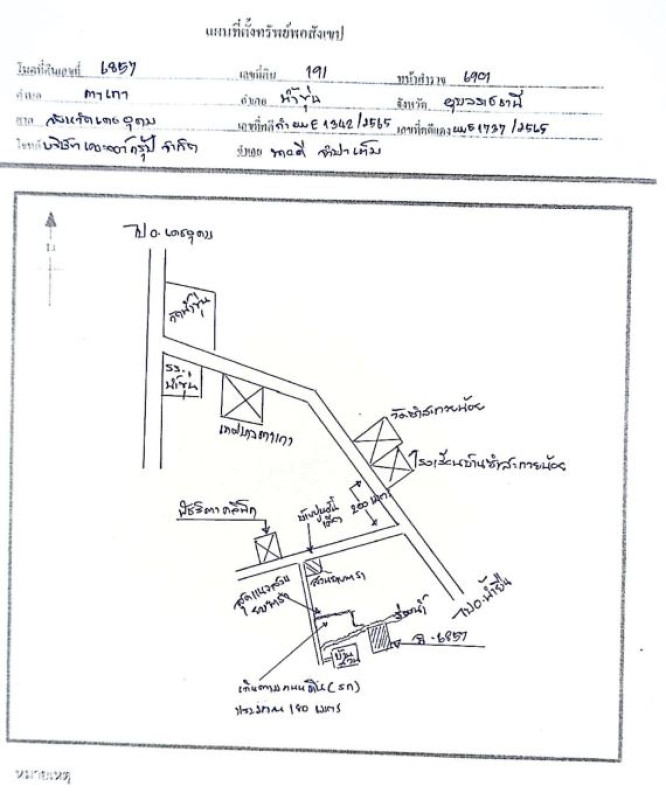 แผนที่ตั้งทรัพย์พอสังเขป
โฉนดที่ดินเลขที่ 6857 เลขที่ดิน 191 หน้าสำรวจ 6901
ตำบล ตาเกา อำเภอ น้ำขุ่น จังหวัด อุบลราชธานี
ศาล จังหวัดเดชอุดม เลขที่คดีดำ ผบE1342/2565 เลขที่คดีแดง ผบE1737/2565
โจทก์ บริษัท จำกัด จำเลย
น
ไป อ.เดชอุดม
วัดน้ำขุ่น
รร.
น้ำขุ่น
เทศบาลตาเกา
วัดซำสะกวยน้อย
โรงเรียนบ้านซำสะกวยน้อย
200 เมตร
พัชริดาคลินิค
สวนยางพารา
สุดแนวสวน
ยางพารา
ไป อ.น้ำยืน
ร่องน้ำ
ฉ.6857
บ้าน
สวน
เดินตามถนนดิน (รก)
ประมาณ 180 เมตร
หมายเหตุ